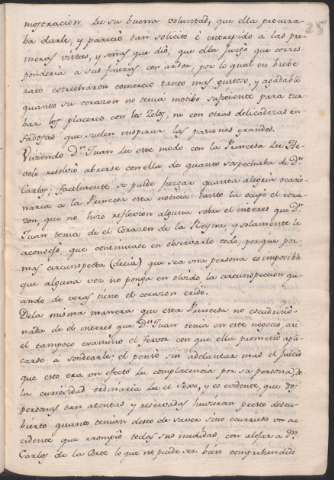 mostracion de su buena voluntad, que ella procura
ba darle, y pareció tan solicito è interesado à las pri
meras vistas, y señas que dió, que ella juzgó que corres
pondiera à sus finezas con ardor, por lo qual en breve
rato estrecharon comercio tanto mas gustoso, y agradable
quanto su corazon no tenia motibo suficiente para tur
bar los placeres con los Zelos, ni con otras delicadezas en
fadosas que suelen inspirar las pasiones grandes.
Viviendo Dn. Juan de este modo con la Princesa de
resolvió abrirse con ella de quanto sospechaba de Dn.
Carlos; facilmente se puede juzgar quanta alegria ocasi
naria à la Princesa esta noticia: hasta la cegó el cora
zon, que no hizo reflexion alguna sobre el interes que Dn.
Juan tenia de el Corazon de la Reyna, y solamente le
aconsejó, que continuase en observarlo todo, porque por
mas circunspecta (decia) que sea una persona es imposible
que alguna vez no ponga en olvido la circunspeccion qu
ando de veras tiene el corazon
De la misma manera que esta Princesa no escudriñó
nada de el interes que Dn. Juan tenia en este negocio, asi
el tampoco examinó el fervor con que ella prometió apli
carse à sondearle; el pensó sin adelantar mas el juicio
que esto era un efecto de la complacencia por su persona, ò de
la curiosidad ordinaria de el sexo, y es evidente, que dos
personas tan atentas y reservadas huvieran presto descu
bierto quanto tenian deseo de saver sino ocurriera un ac
cidente que rrompió todas sus medidas, con alejar à Dn.
Carlos de la Corte lo que no puede ser bien comprehendido